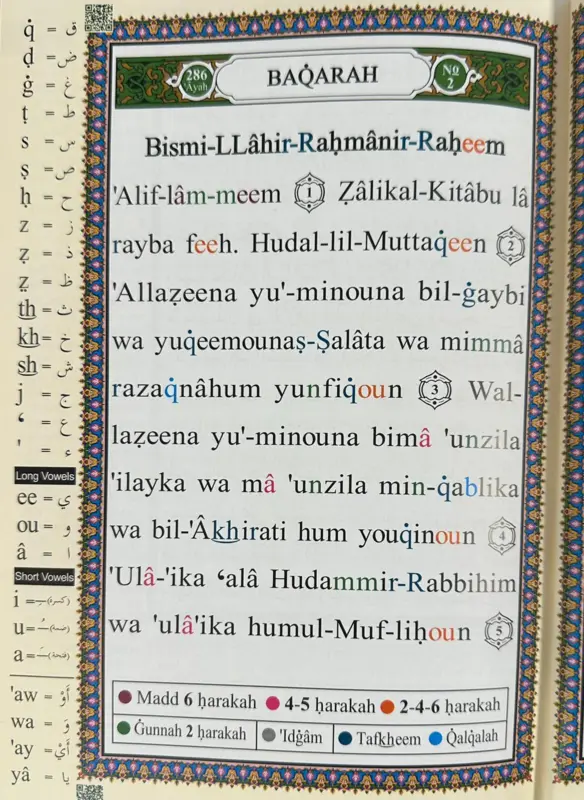 q̇ = ق
ḍ = ض
ġ = غ
ṭ = ط
s = س
ṣ = ص
ḥ = ح
z = ز
ẓ = ذ
ẓ = ظ
th = ث
kh = خ
sh = ش
j = ج
‘ = ع
' = ء
Long Vowels
ee = ي
ou = و
â = ا
Short Vowels
i = ـِ (كسرة)
u = ـُ (ضمة)
a = ـَ (فتحة)
'aw = أَوْ
wa = وَ
'ay = أَيْ
yâ = يا
286
'Ayah
BAQ̇ARAH
No
2
Bismi-LLâhir-Raḥmânir-Raḥeem
'Alif-lâm-meem 1 Ẓâlikal-Kitâbu lâ
rayba feeh. Hudal-lil-Muttaq̇een 2
'Allaẓeena yu'-minouna bil-ġaybi
wa yuq̇eemounaṣ-Ṣalâta wa mimmâ
razaq̇nâhum yunfiq̇oun 3 Wal-
laẓeena yu'-minouna bimâ 'unzila
'ilayka wa mâ 'unzila min-q̇ablika
wa bil-'Âkhirati hum youq̇inoun 4
'Ulâ-'ika ‘alâ Hudammir-Rabbihim
wa 'ulâ'ika humul-Muf-liḥoun 5
Madd 6 ḥarakah 4-5 ḥarakah 2-4-6 ḥarakah
Ġunnah 2 ḥarakah 'Idġâm Tafkheem Q̇alq̇alah